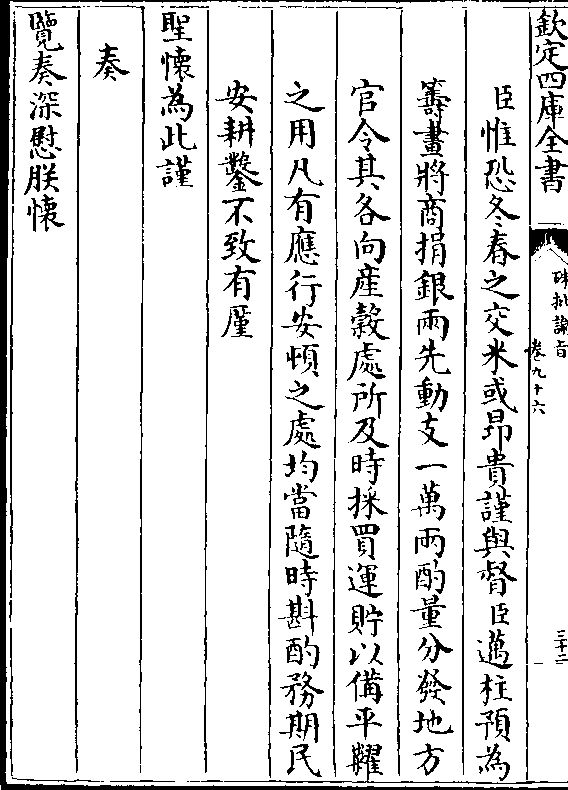 欽定四庫全書
硃批諭旨
卷九十六
三十二
臣惟恐冬春之交米或昻貴謹與督臣邁柱預為
籌畫將商捐銀兩先動支一萬兩酌量分發地方
官令其各向產穀處所及時採買運貯以備平糶
之用凡有應行安頓之處均當隨時斟酌務期民
安耕鑿不致有厪
聖懷為此謹
奏
覽奏深慰朕懷